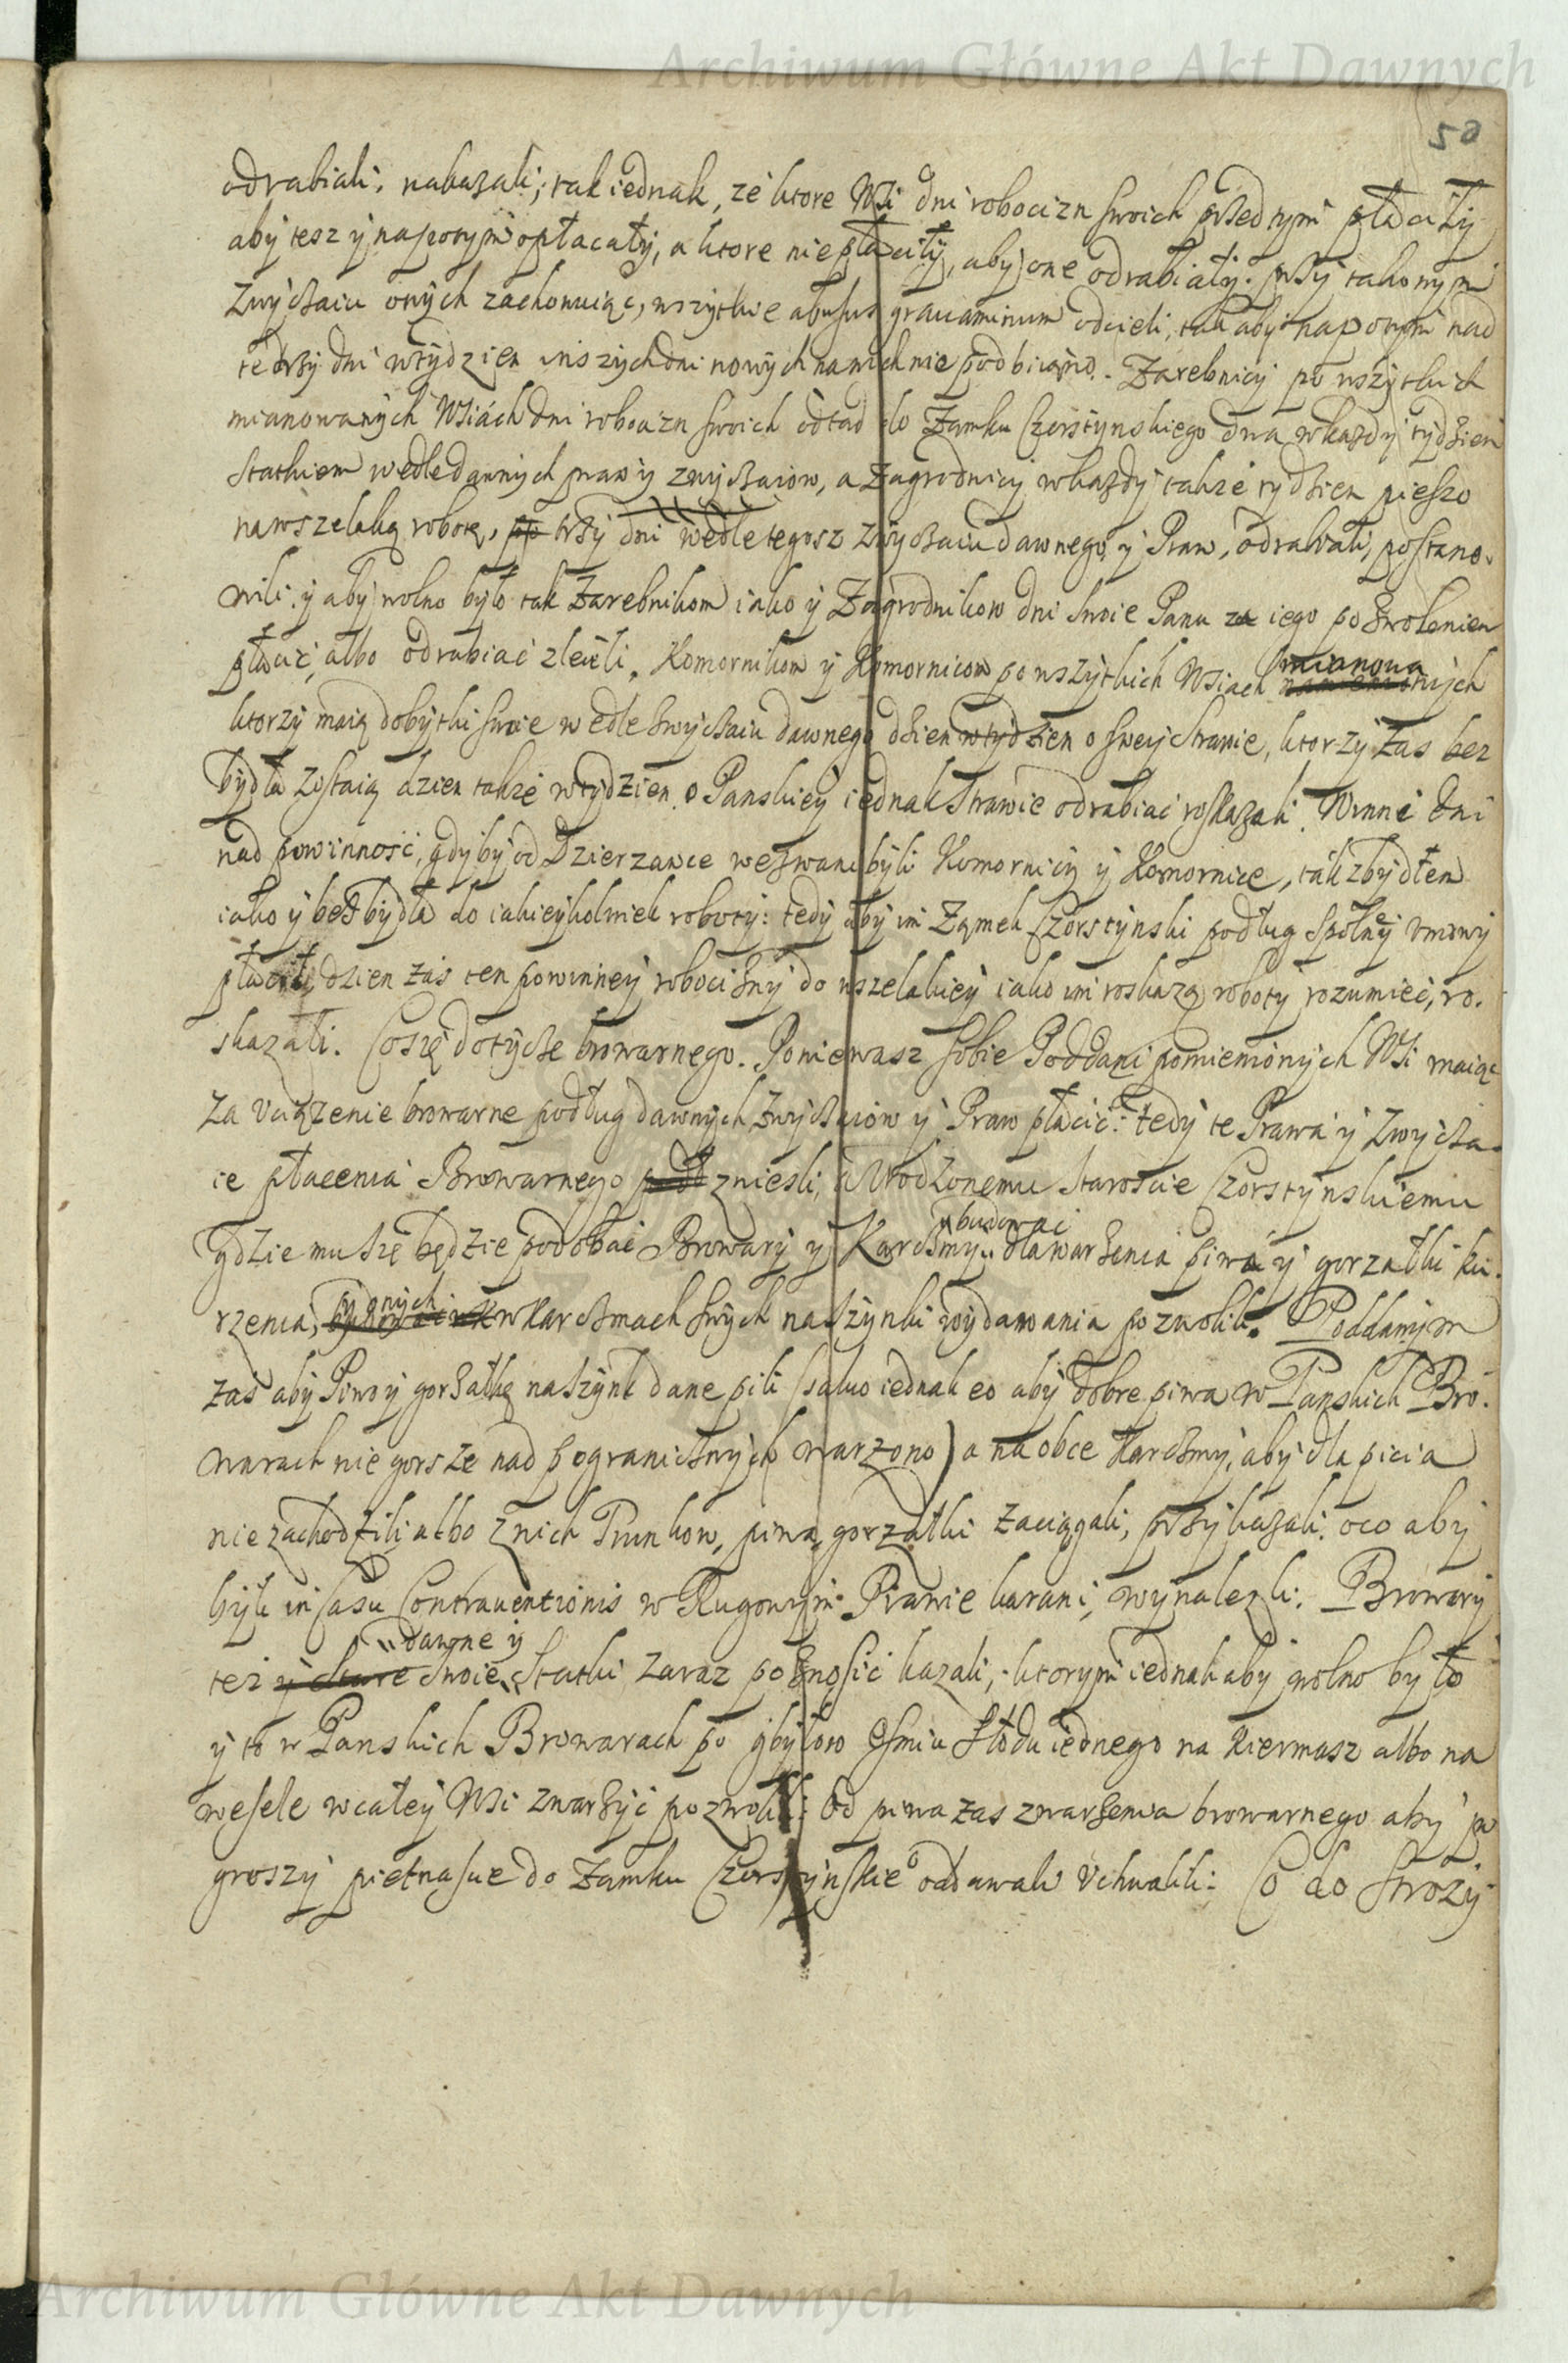 Archiwum Główne Akt Dawnych
50
odrabiali, nakazali; tak iednak, że ktore Wsi dni robocizn swoich przed tym płaciły
aby tesz y napotym opłacały, a ktore niepłaciły, aby one odrabiały. przy takowym
zwyczaiu onych zachowuiąc, wszytkie abusus grauaminum odcieli, tak aby napotym nad
te trzy dni wtydzien inszych dni nowych nanich nie podbiiano. Zarebnicy po wszytkich
mianowanych Wsiách dni robocizn swoich odtad do Zamku Czorstynskiego dwa wkazdy tydzien
statkiem wedle dawnych praw y zwyczaiow, a Zagrodnicy wkazdy takze tydzien pieszo
nawszelaką robotę, po trzy dni wedle tegosz zwyczaiu dawnego y Praw, odrabiali, postano-
wili. y aby wolno było tak Zarebnikom iako y Zagrodnikow dni swoie Panu za iego pozwoleniem
płacić, albo odrabiać zlecili. Komornikow y Komornicow po wszytkich Wsiach mianowanych
ktorzy maią dobytki swoie wedle zwyczaiu dawnego dzien wtydzien o swey strawie, ktorzy zas bez
bydła zostaią dzien takze wtydzien o Panskiey iednak strawie odrabiać roskazali. Winne dni
nad powinność, gdyby od Dzierzawce wezwani byli Komornicy y Komornice, ták zbydłem
iako y bez bydła do iakieykolwiek roboty: tedy aby im Zamek Czorstynski podług spolney vmowy
płacił, dzien zaś ten powinney robocizny do wszelakiey iako im roskazą roboty rozumieć, ro-
skazali. Co się dotycze browarnego. Poniewasz sobie Poddani pomienionych Wsi maiąc
za vciązenie browarne podług dawnych zwyczaiow y Praw płacić: tedy te Prawa y zwycza-
ie płacenia Browarnego pod zniesli, Vrodzonemu Staroscie Czorstynskiemu
gdzie mu się będzie podobać Browary y Karczmy budować dla warzenia piwa y gorzałki ku-
rzenia, y onych w karczmach swych na szynki wydawania pozwolili. Poddanym
zas aby Piwo y gorzałkę na szynk dane pili (saluo iednak eo aby dobre piwa w Panskich Bro-
warach nie gorsze nad pogranicznych warzono) a na obce karczmy, aby dla picia
nie zachodzili, albo z nich Trunkow, piwa, gorzałki zaciągali, przykazali. oco aby
byli in casu Contrauentionis w Rugowym Prawie karani, wynalezli. Browary
też y stare dawne y swoie statki zaraz poznosić kazali, ktorym iednak aby wolno było
y to w Panskich Browarach po zbytow osmiu słodu iednego na kiermasz albo na
wesele wcałey Wsi zwarzyć pozwolili; Od piwa zas zwarzenia browarnego aby po
groszy pietnascie do Zamku Czorstynskieº oddawali vchwalili: Co do strozy
Archiwum Główne Akt Dawnych